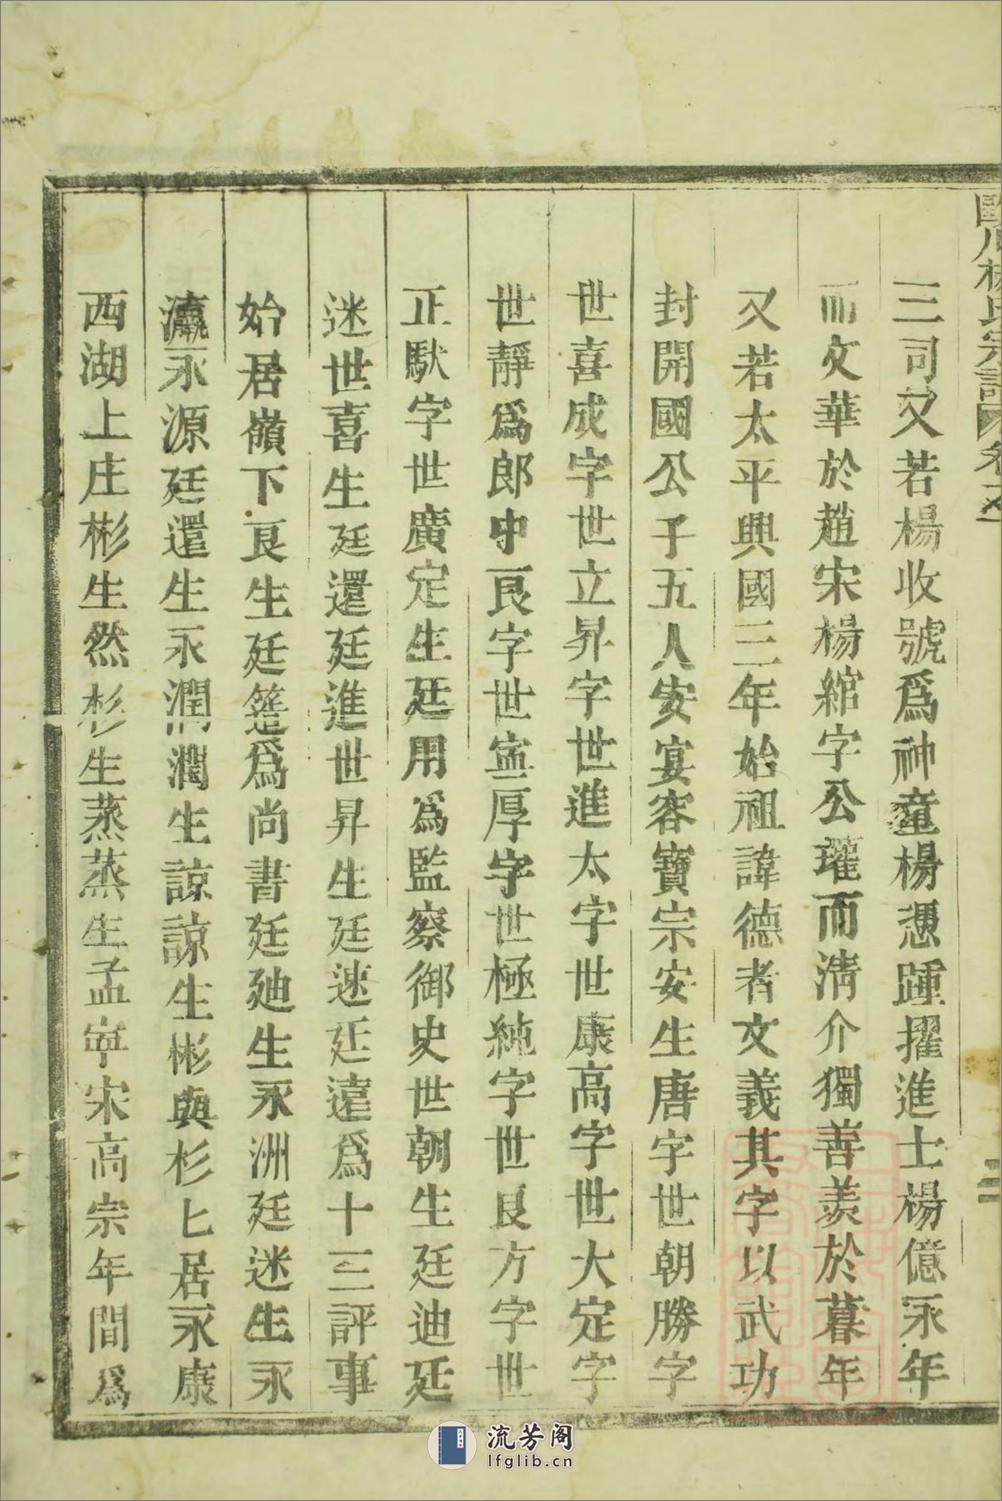 三司又若楊收號爲神童楊憑踵擢進士楊億永年
而文華於趙宋楊綰字公瓘而淸介獨善羨於暮年
又若太平興國三年始祖諱德者文義其字以武功
封開國公子五人安宴容寶宗安生唐字世朝勝字
世喜成字世立昇字世進太字世康高字世大定字
世靜爲郎中艮字世寍厚字世極純字世良方字世
正猷字世廣定生廷用爲監察御史世朝生廷迪廷
迷世喜生廷還廷進世昇生廷速廷遠爲十三評事
始居嶺下艮生廷筵爲尚書廷迪生永洲廷迷生永
瀛永源廷還生永潤潤生諒諒生彬與杉匕居永康
西湖上庄彬生然杉生蒸蒸生孟寍宋高宗年間爲
楊氏宗譜
二
流芳阁
lfglib.cn